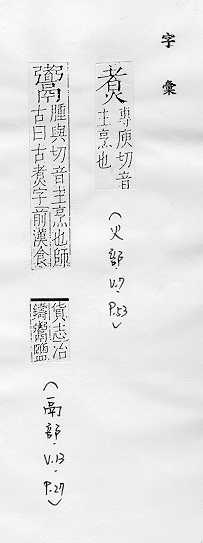 字彙
煑
專庾切音
主烹也
(火部 V.7. P.53)
䰞
腫與切音主烹也師
古曰古煑字前漢食
貨志冶
鑄䰞鹽
(鬲部. V.13. P.27)